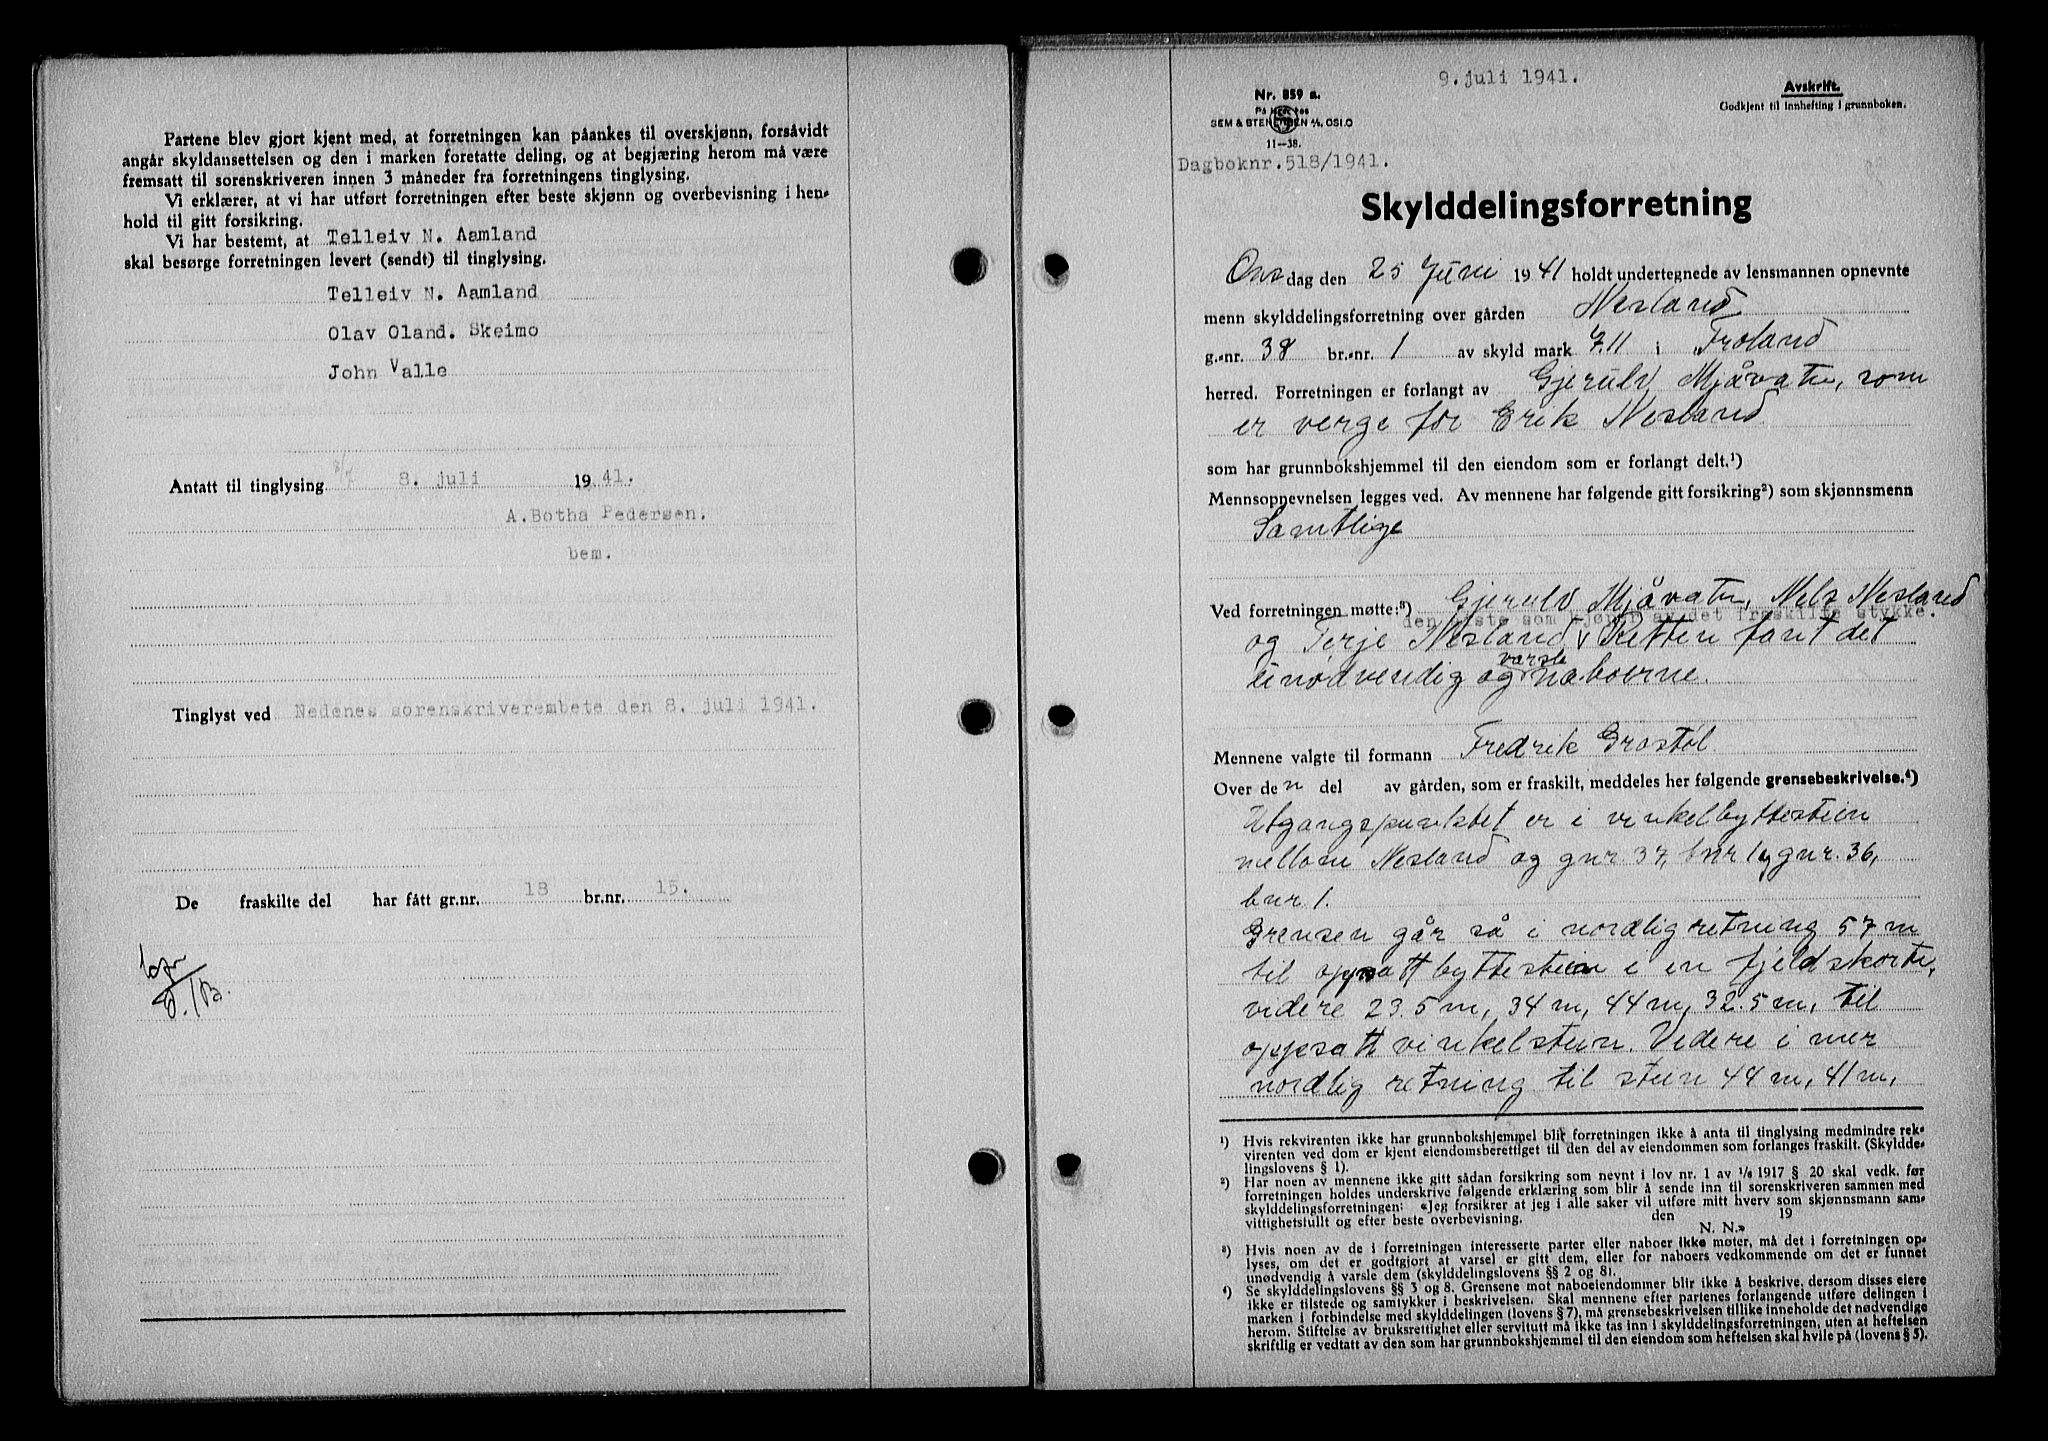 Partene blev gjort kjent med, at forretningen kan påankes til overskjønn, forsåvidt
angår skyldansettelsen og den i marken foretatte deling, og at begjæring herom må være
fremsatt til sorenskriveren innen 3 måneder fra forretningens tinglysing.
Vi erklærer, at vi har utført forretningen efter beste skjønn og overbevisning i hen-
hold til gitt forsikring.
Vi har bestemt, at Telleiv N. Aamland
skal besørge forretningen levert (sendt) til tinglysing.
Telleiv N. Aamland
Olav Oland. Skeimo
John Valle
8/7
Antatt til tinglysing 8. juli 1941.
A. Botha Pedersen.
bem.
Tinglyst ved Nedenes sorenskriverembete den 8. juli 1941.
De fraskilte del har fått gr.nr. 18 br.nr. 15.
9. juli 1941.
Nr. 859 a.
SEM & STENERSEN A/S, OSLO
11—38.
Avskrift.
Godkjent til innhefting i grunnboken.
Dagboknr. 518/1941.
Skylddelingsforretning
Onsdag den 25 Juni 1941 holdt undertegnede av lensmannen opnevnte
menn skylddelingsforretning over gården Nesland
g.-nr. 38 br.-nr. 1 av skyld mark 7.11 i Froland
herred. Forretningen er forlangt av Gjerulv Mjåvatn, som
er verge for Erik Nesland
som har grunnbokshjemmel til den eiendom som er forlangt delt.¹)
Mennsopnevnelsen legges ved. Av mennene har følgende gitt forsikring²) som skjønnsmenn
Samtlige
Ved forretningen møtte:³) Gjerulv Mjåvatn, Nels Nesland
den siste som kjøper av det fraskilte stykke.
og Terje Nesland v Retten fant det
unødvendig og varsle naboerne.
Mennene valgte til formann Fredrik Grostøl
Over den del av gården, som er fraskilt, meddeles her følgende grensebeskrivelse.⁴)
Utgangspunktet er i vinkelbyttestein
mellom Nesland og gnr. 37, bnr 1 og gnr. 36,
bnr 1.
Grensen går så i nordlig retning 57 m
til oppsatt byttestein i en fjeldskorte,
videre 23.5 m, 34 m, 44 m, 32.5 m, til
oppsatt vinkelstein. Videre i mer
nordlig retning til stein 44 m, 41 m,
¹) Hvis rekvirenten ikke har grunnbokshjemmel blir forretningen ikke å anta til tinglysing medmindre rek-
virenten ved dom er kjent eiendomsberettiget til den del av eiendommen som forlanges fraskilt. (Skyldde-
lingslovens § 1).
²) Har noen av mennene ikke gitt sådan forsikring som nevnt i lov nr. 1 av 1/6 1917 § 20 skal vedk. før
forretningen holdes underskrive følgende erklæring som blir å sende inn til sorenskriveren sammen med
skylddelingsforretningen: «Jeg forsikrer at jeg i alle saker vil utføre mitt hverv som skjønnsmann sam-
vittighetsfullt og efter beste overbevisning. den 19
N. N.»
³) Hvis noen av de i forretningen interesserte parter eller naboer ikke møter, må det i forretningen op-
lyses, om det er godtgjort at varsel er gitt dem, eller for naboers vedkommende om det er funnet
unødvendig å varsle dem (skylddelingslovens §§ 2 og 8).
⁴) Se skylddelingslovens §§ 3 og 8. Grensene mot naboeiendommer blir ikke å beskrive, dersom disses eiere
ikke er tilstede og samtykker i beskrivelsen. Skal mennene efter partenes forlangende utføre delingen i
marken i forbindelse med skylddelingen (lovens § 7), må grensebeskrivelsen tillike inneholde det nødvendige
herom. Stiftelse av bruksrettighet eller servitutt må ikke tas inn i skylddelingsforretningen, uten at heftelsen
skriftlig er vedtatt av den som har grunnbokshjemmel til den eiendom som heftelsen skal hvile på (lovens § 5).